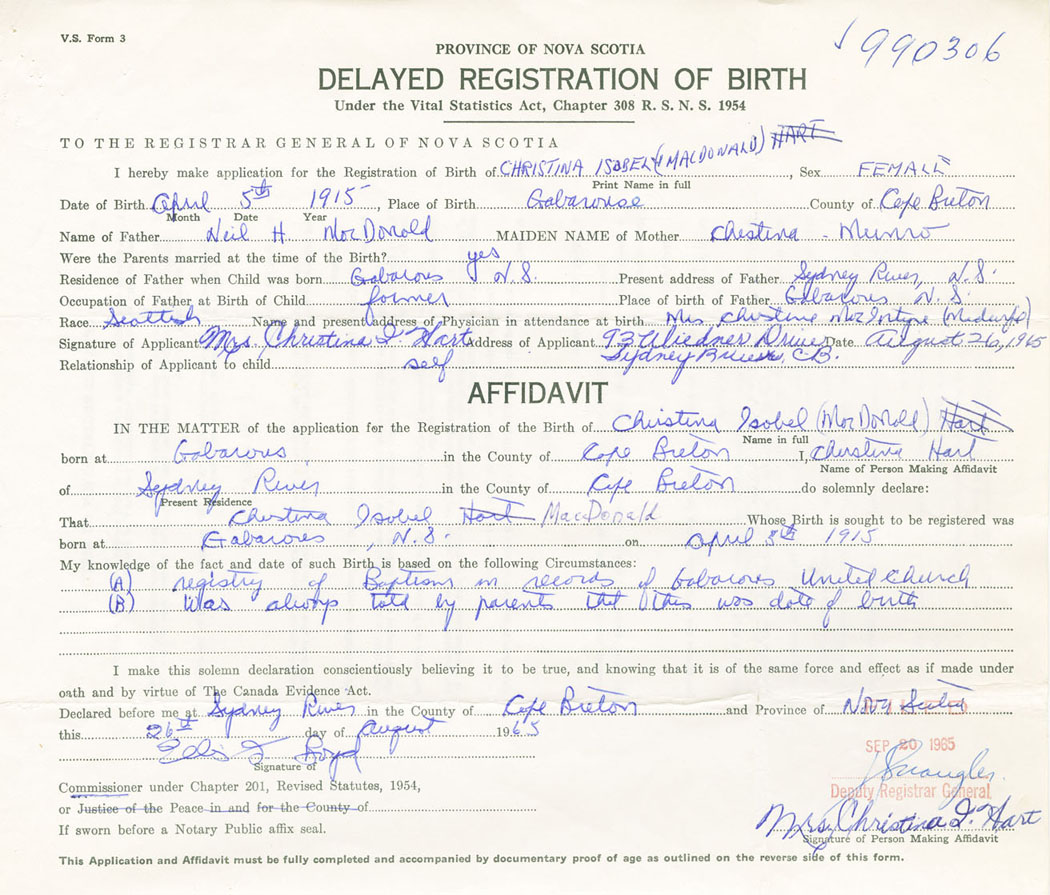 V.S. Form 3
990306
PROVINCE OF NOVA SCOTIA
DELAYED REGISTRATION OF BIRTH
Under the Vital Statistics Act, Chapter 308 R. S. N. S. 1954
TO THE REGISTRAR GENERAL OF NOVA SCOTIA
I hereby make application for the Registration of Birth of CHRISTINA ISOBEL (MACDONALD) HART, Sex FEMALE
Print Name in full
Date of Birth April 5th 1915, Place of Birth Gabarouse County of Cape Breton
Month Date Year
Name of Father Neil H MacDonald MAIDEN NAME of Mother Christina Munro
Were the Parents married at the time of the Birth? yes
Residence of Father when Child was born Gabarous N.S. Present address of Father Sydney River, N.S.
Occupation of Father at Birth of Child farmer Place of birth of Father Gabarous N.S.
Race Scottish Name and present address of Physician in attendance at birth Mrs Christine MacIntyre (Midwife)
Signature of Applicant Mrs. Christina I. Hart Address of Applicant 93 Drive Date August 26, 1965
Sydney River, C.B.
Relationship of Applicant to child self
AFFIDAVIT
IN THE MATTER of the application for the Registration of the Birth of Christina Isobel (MacDonald) Hart
Name in full
born at Gabarous in the County of Cape Breton I, Christina Hart
Name of Person Making Affidavit
of Sydney River in the County of Cape Breton do solemnly declare:
Present Residence
That Christina Isobel Hart MacDonald Whose Birth is sought to be registered was
born at Gabarous, N.S. on April 5th 1915
My knowledge of the fact and date of such Birth is based on the following Circumstances:
(A) registry of Baptism in records of Gabarous United Church
(B) Was always told by parents that this was date of birth
I make this solemn declaration conscientiously believing it to be true, and knowing that it is of the same force and effect as if made under
oath and by virtue of The Canada Evidence Act.
Declared before me at Sydney River in the County of Cape Breton and Province of Nova Scotia
this 26th day of August 1965
SEP 20 1965
Signature of
Commissioner under Chapter 201, Revised Statutes, 1954,
Deputy Registrar General
or Justice of the Peace in and for the County of
Mrs. Christina I. Hart
If sworn before a Notary Public affix seal.
Signature of Person Making Affidavit
This Application and Affidavit must be fully completed and accompanied by documentary proof of age as outlined on the reverse side of this form.